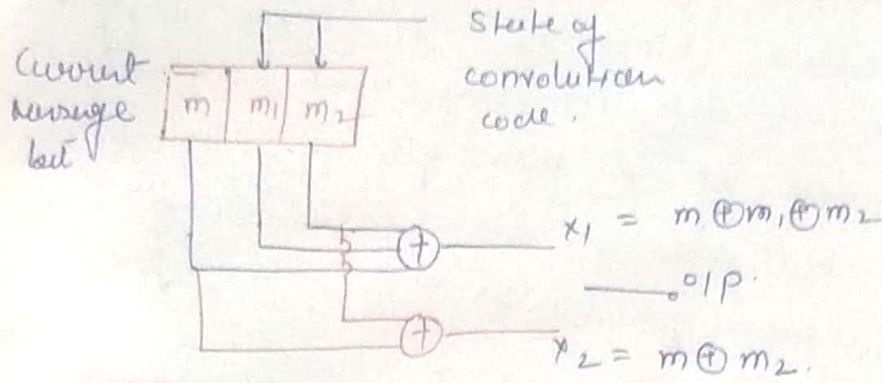 State of
convolution
code.
Current
message
bit
m m1 m2
x1 = m ⊕ m1 ⊕ m2
o/p.
x2 = m ⊕ m2.